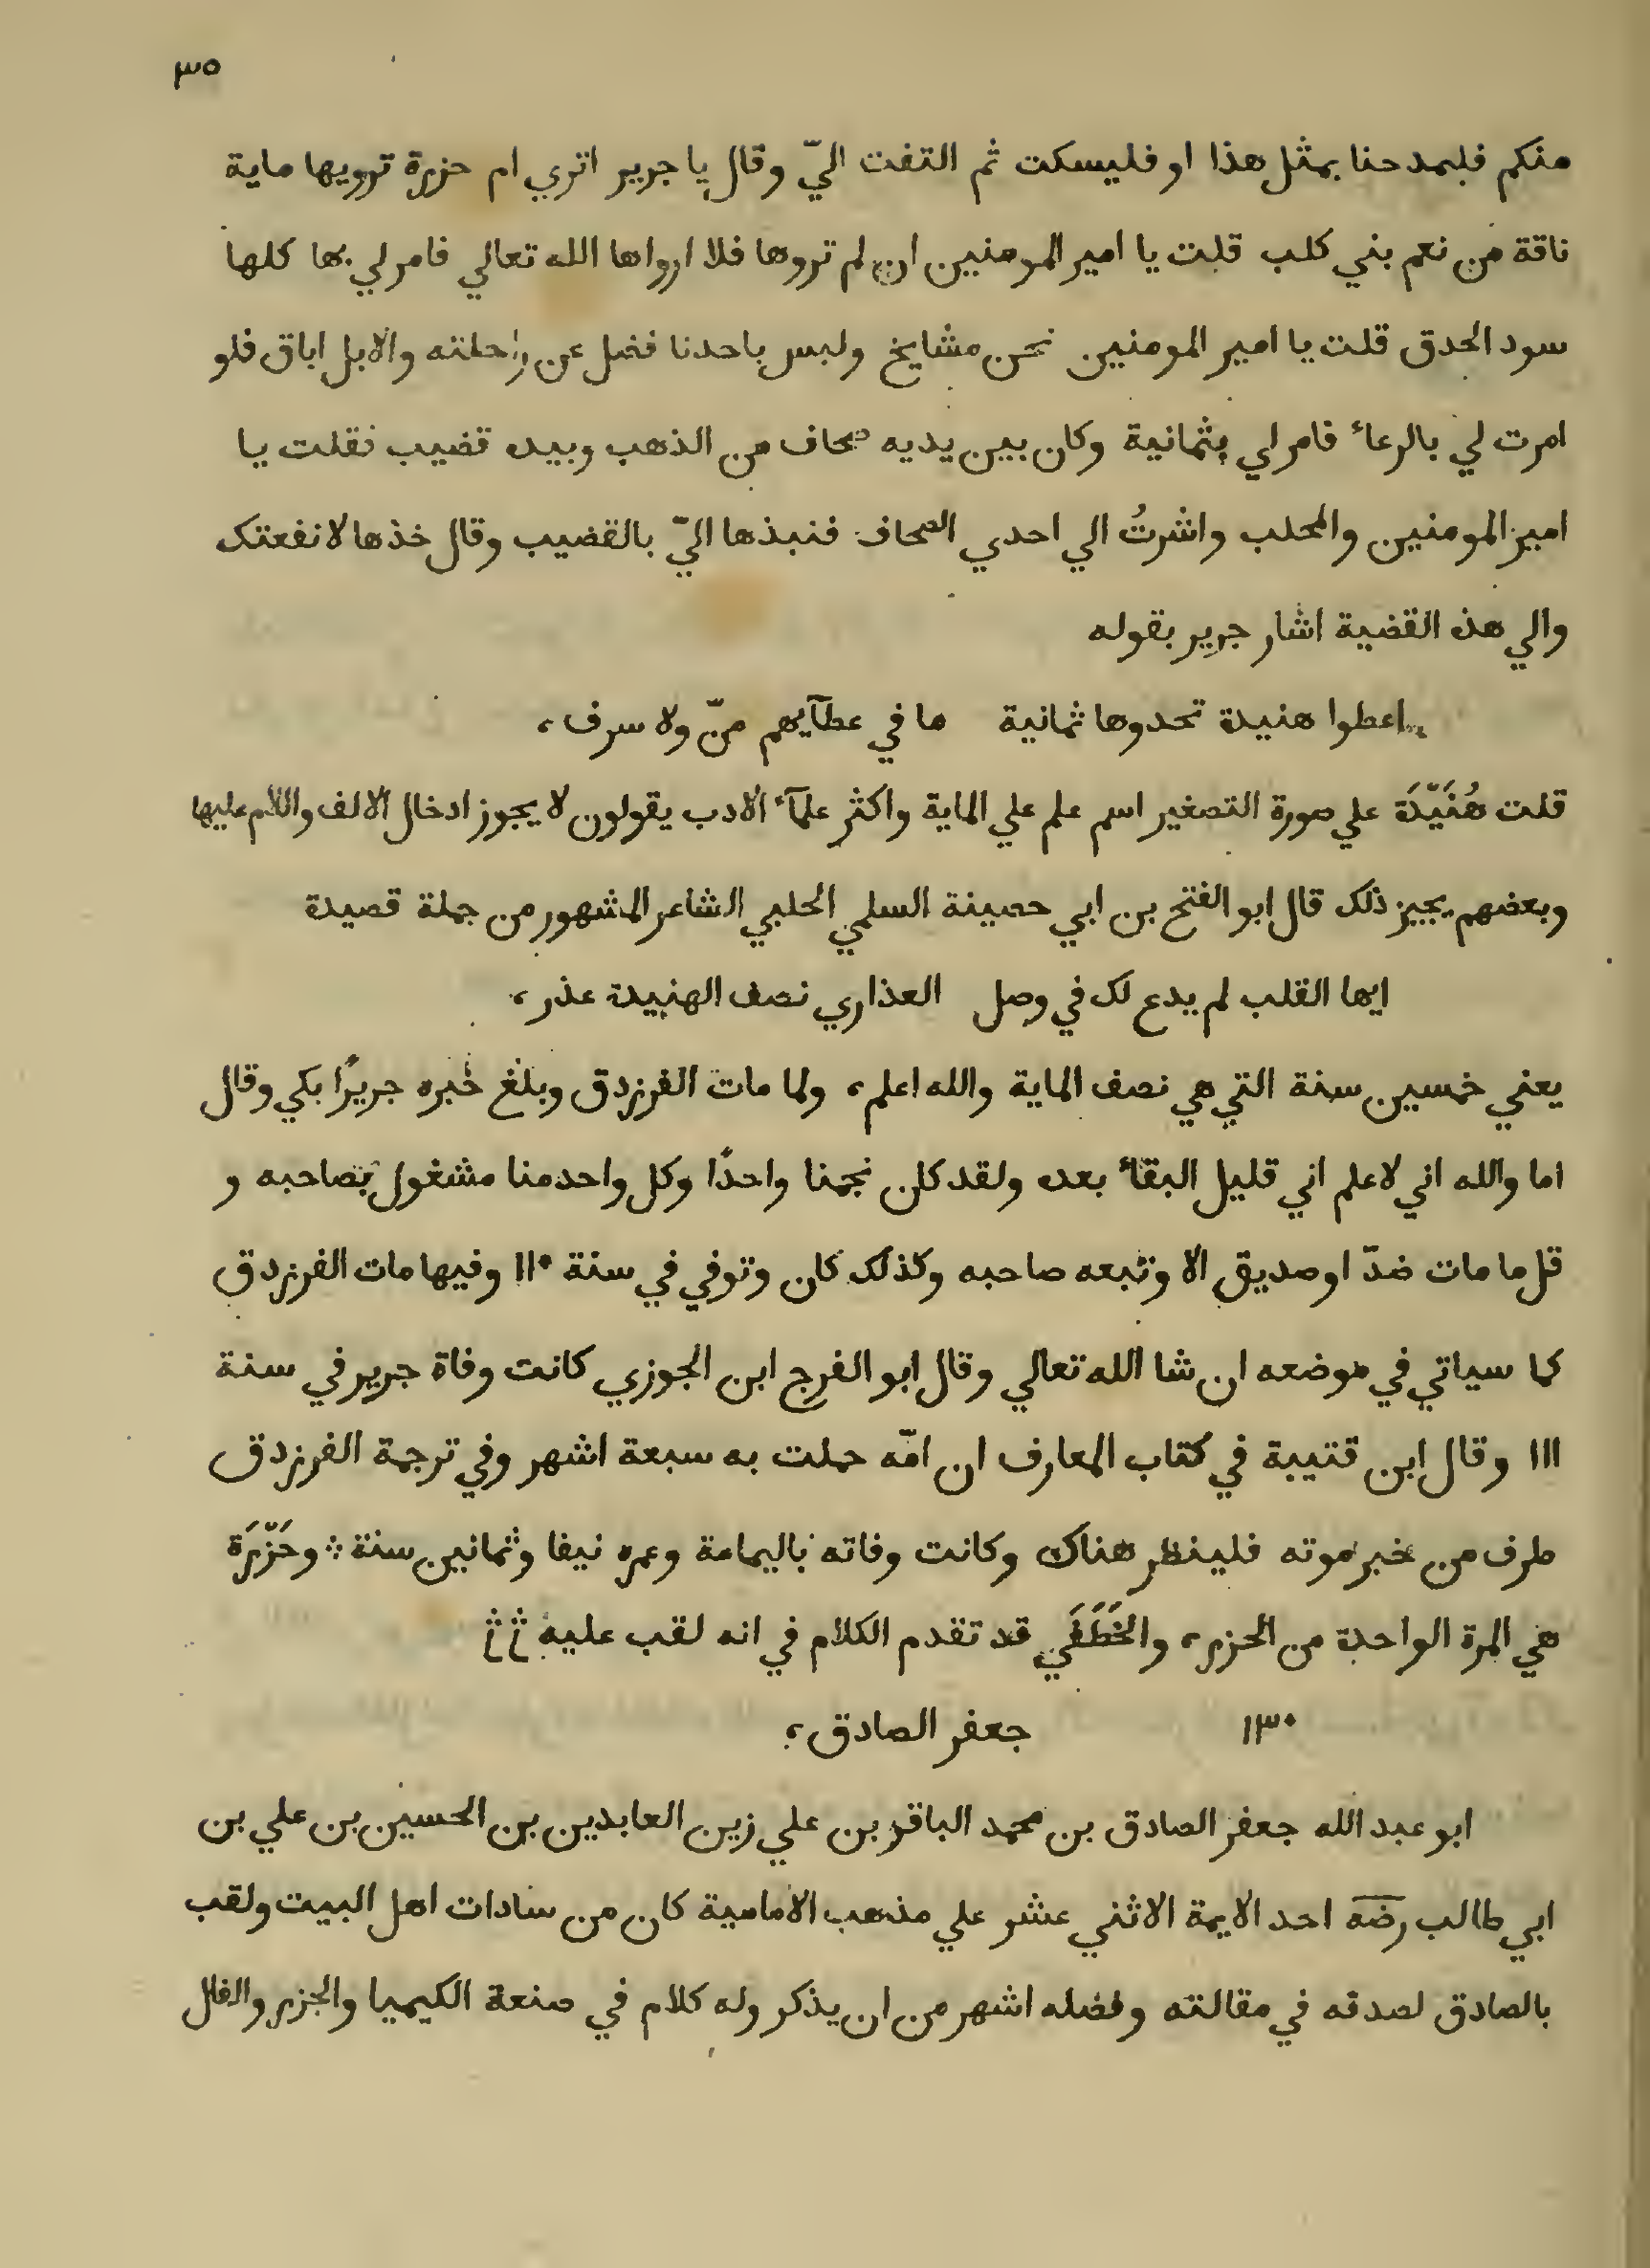 ٣٥
منكم فليمدحنا بمثل هذا او فليسكت ثم التفت اليّ وقال يا جرير اتري ام حزرة ترويها ماية
ناقة من نعم بني كلب قلت يا امير المومنين ان لم تروها فلا ارواها الله تعالي فامر لي بها كلها
سود الحدق قلت يا امير المومنين نحن مشايخ وليس باحدنا فضل عن راحلته والابل اباق فلو
امرت لي بالرعاء فامر لي بثمانية وكان بين يديه صحاف من الذهب وبيده قضيب فقلت يا
امير المومنين والمحلب واشرتُ الي احدي الصحاف فنبذها اليّ بالقضيب وقال خذها لا نفعتك
والي هذه القضية اشار جرير بقوله
اعطوا هنيدة تحدوها ثمانية ما في عطآيهم منّ ولا سرف،
قلت هُنَيّدَة علي صورة التصغير اسم علم علي الماية واكثر علمآء الادب يقولون لا يجوز ادخال الالف واللام عليها
وبعضهم يجيز ذلك قال ابو الفتح بن ابي حصينة السلمي الحلبي الشاعر المشهور من جملة قصيدة
ايها القلب لم يدع لك في وصل العذاري نصف الهنيدة عذر،
يعني خمسين سنة التي هي نصف الماية والله اعلم، ولما مات الفرزدق وبلغ خبره جريرًا بكي وقال
اما والله اني لاعلم اني قليل البقاء بعده ولقد كان نجمنا واحدًا وكل واحد منا مشغول بصاحبه و
قل ما مات ضدّ او صديق الا وتبعه صاحبه وكذلك كان وتوفي في سنة ١١٠ وفيها مات الفرزدق
كما سياتي في موضعه ان شا الله تعالي وقال ابو الفرج ابن الجوزي كانت وفاة جرير في سنة
١١١ وقال ابن قتيبة في كتاب المعارف ان امّه حملت به سبعة اشهر وفي ترجمة الفرزدق
طرف من خبر موته فلينظر هناك وكانت وفاته باليمامة وعمره نيفا وثمانين سنة ؞ وحَزّرَة
هي المرة الواحدة من الحزر، والخَطَفَي قد تقدم الكلام في انه لقب عليه
١٣٠ جعفر الصادق،
ابو عبد الله جعفر الصادق بن محمد الباقر بن علي زين العابدين بن الحسين بن علي بن
ابي طالب رضه احد الايمة الاثني عشر علي مذهب الامامية كان من سادات اهل البيت ولقب
بالصادق لصدقه في مقالته وفضله اشهر من ان يذكر وله كلام في صنعة الكيميا والجزر والفال